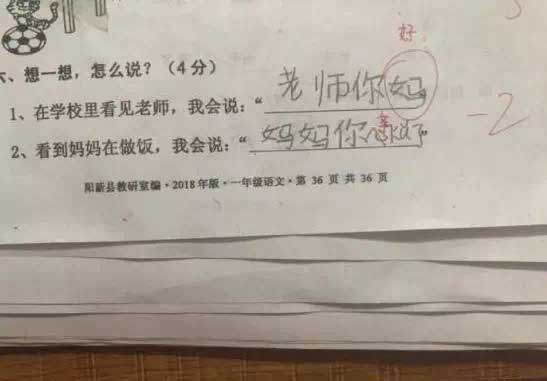 好
六、想一想，怎么说？（4分）
1、在学校里看见老师，我会说：“老师你妈”
2、看到妈妈在做饭，我会说：“妈妈你辛苦了”
-2
阳新县教研室编·2018年版·一年级语文·第 36 页 共 36 页